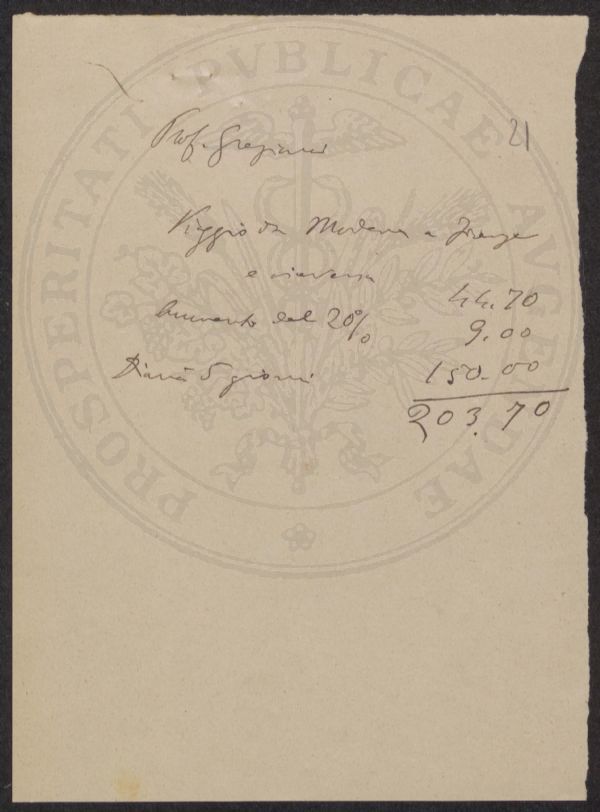 PROSPERITATI PVBLICAE AVGENDAE
21
Prof. Graziani
Viaggio da Modena a Firenze
e viceversa 44.70
Aumento del 20% 9.00
Diarie 5 giorni 150.00
203.70